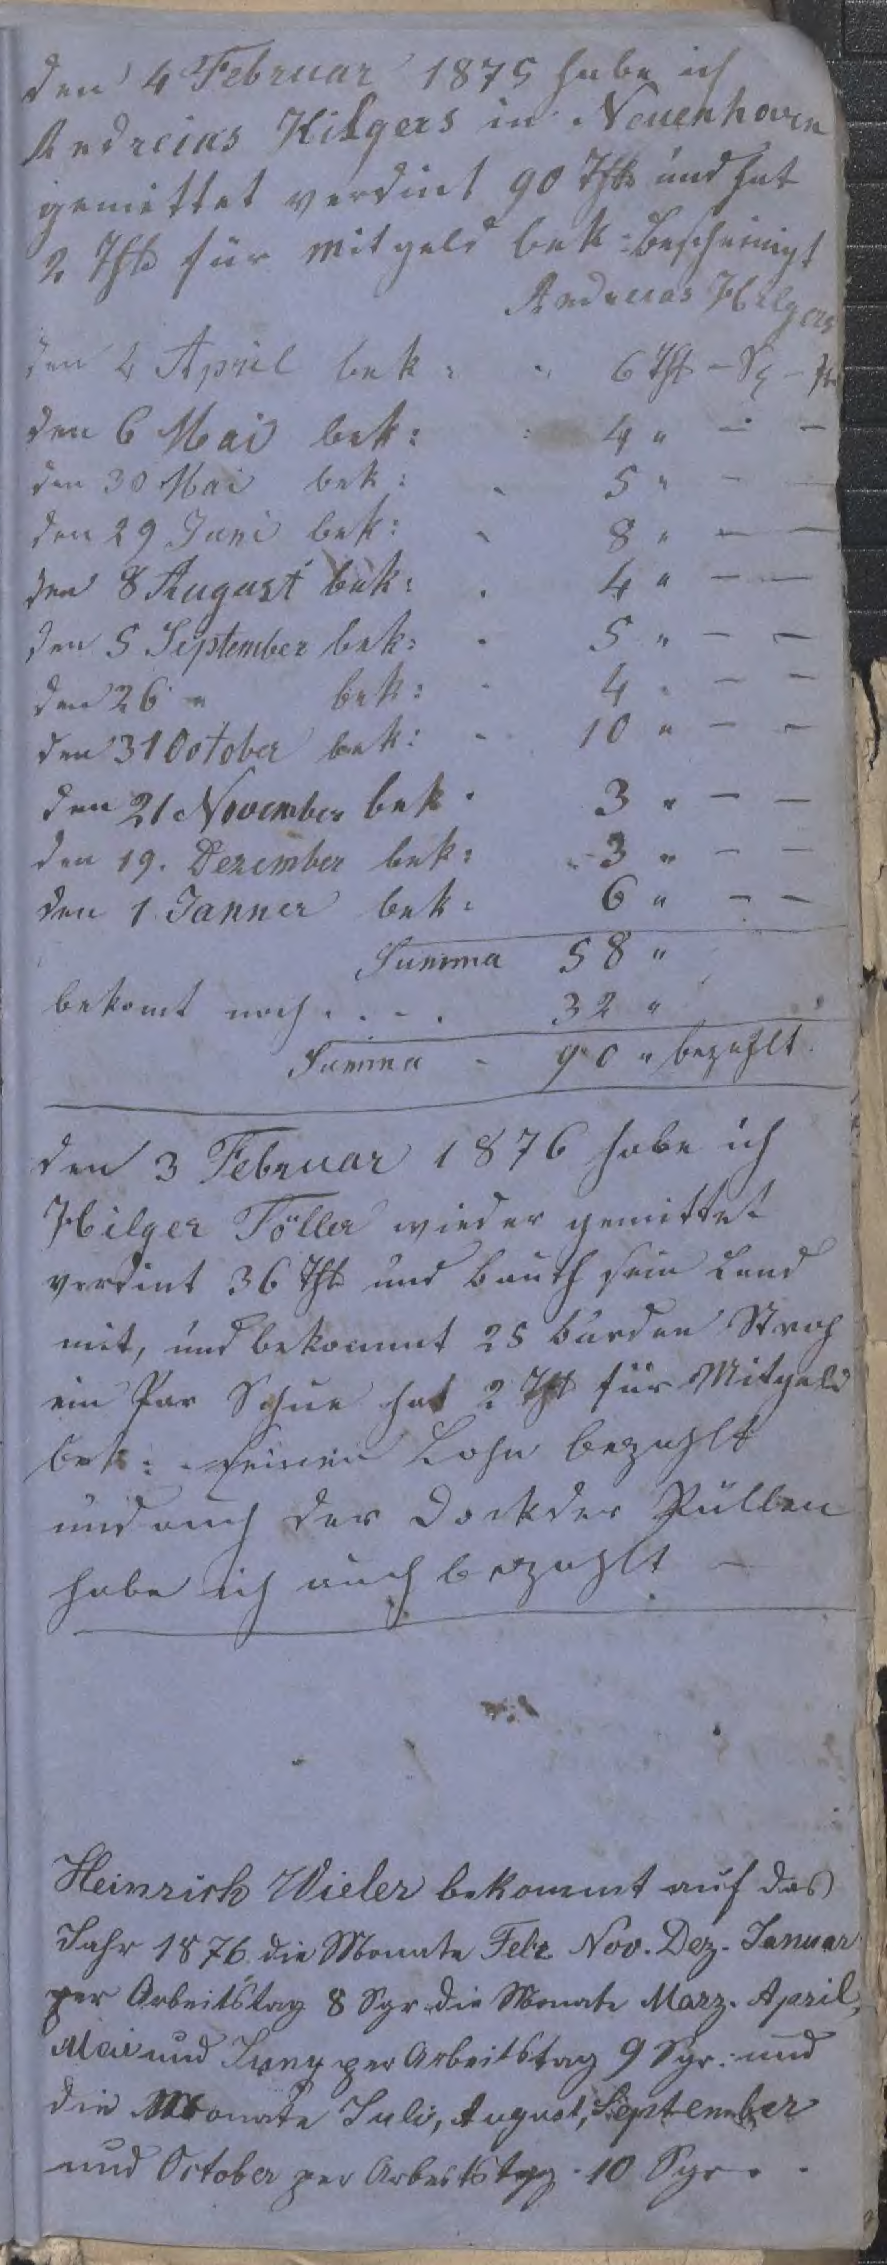 den 4 Februar 1875 habe ich
Andreias Hilgers in Neuenhoven
gemittet verdint 90 Thlr und hat
2 Thlr für Mitgeld bek: Bescheinigt
Andreas Hilgers
den 4 April bek: " 6 Thlr – Sg – Pf
den 6 Mai bek: 4 " – –
den 30 Mai bek: 5 " – –
den 29 Juni bek: 8 " – –
den 8 August bek: 4 " – –
den 5 September bek: 5 " – –
den 26 " bek: 4 " – –
den 31 October bek: 10 " – –
den 21 November bek. 3 " – –
den 19. Dezember bek: 3 " – –
den 1 Janner bek: 6 " – –
Summa 58 "
bekomt noch . . . . 32 "
Summa - 90 " bezahlt.
den 3 Februar 1876 habe ich
Hilger Töller wieder gemittet
verdint 36 Thlr und bauth sein Land
mit, und bekommt 25 bürden Stroh
ein Par Schue hat 2 Thlr für Mitgeld
bek: seinen Lohn bezahlt
und auch der Dockder Püllen
habe ich auch bezahlt –
Heinrich Wieler bekommt auf das
Jahr 1876 die Monate Febr Nov. Dez. Januar
per Arbeitstag 8 Sgr die Monate Marz. April,
Mai und Juny per Arbeitstag 9 Sgr. und
die Monate Juli, August, September
und October per Arbeitstag 10 Sgr. .